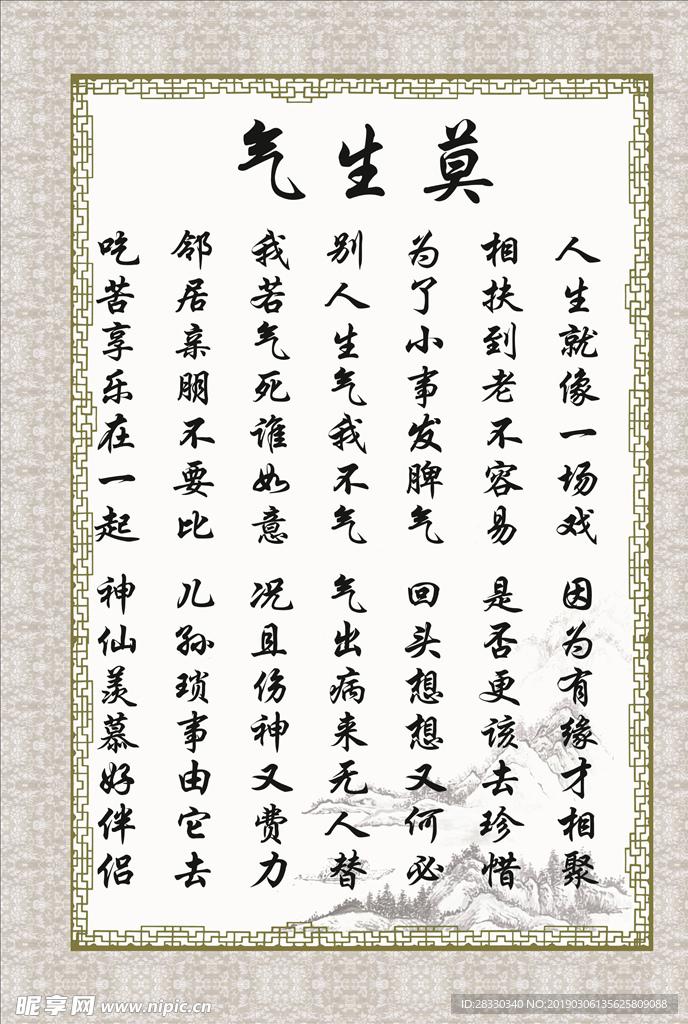 莫生气
人生就像一场戏
因为有缘才相聚
相扶到老不容易
是否更该去珍惜
为了小事发脾气
回头想想又何必
别人生气我不气
气出病来无人替
我若气死谁如意
况且伤神又费力
邻居亲朋不要比
儿孙琐事由它去
吃苦享乐在一起
神仙羡慕好伴侣
昵享网 www.nipic.cn
ID:28330340 NO:20190306135625809088